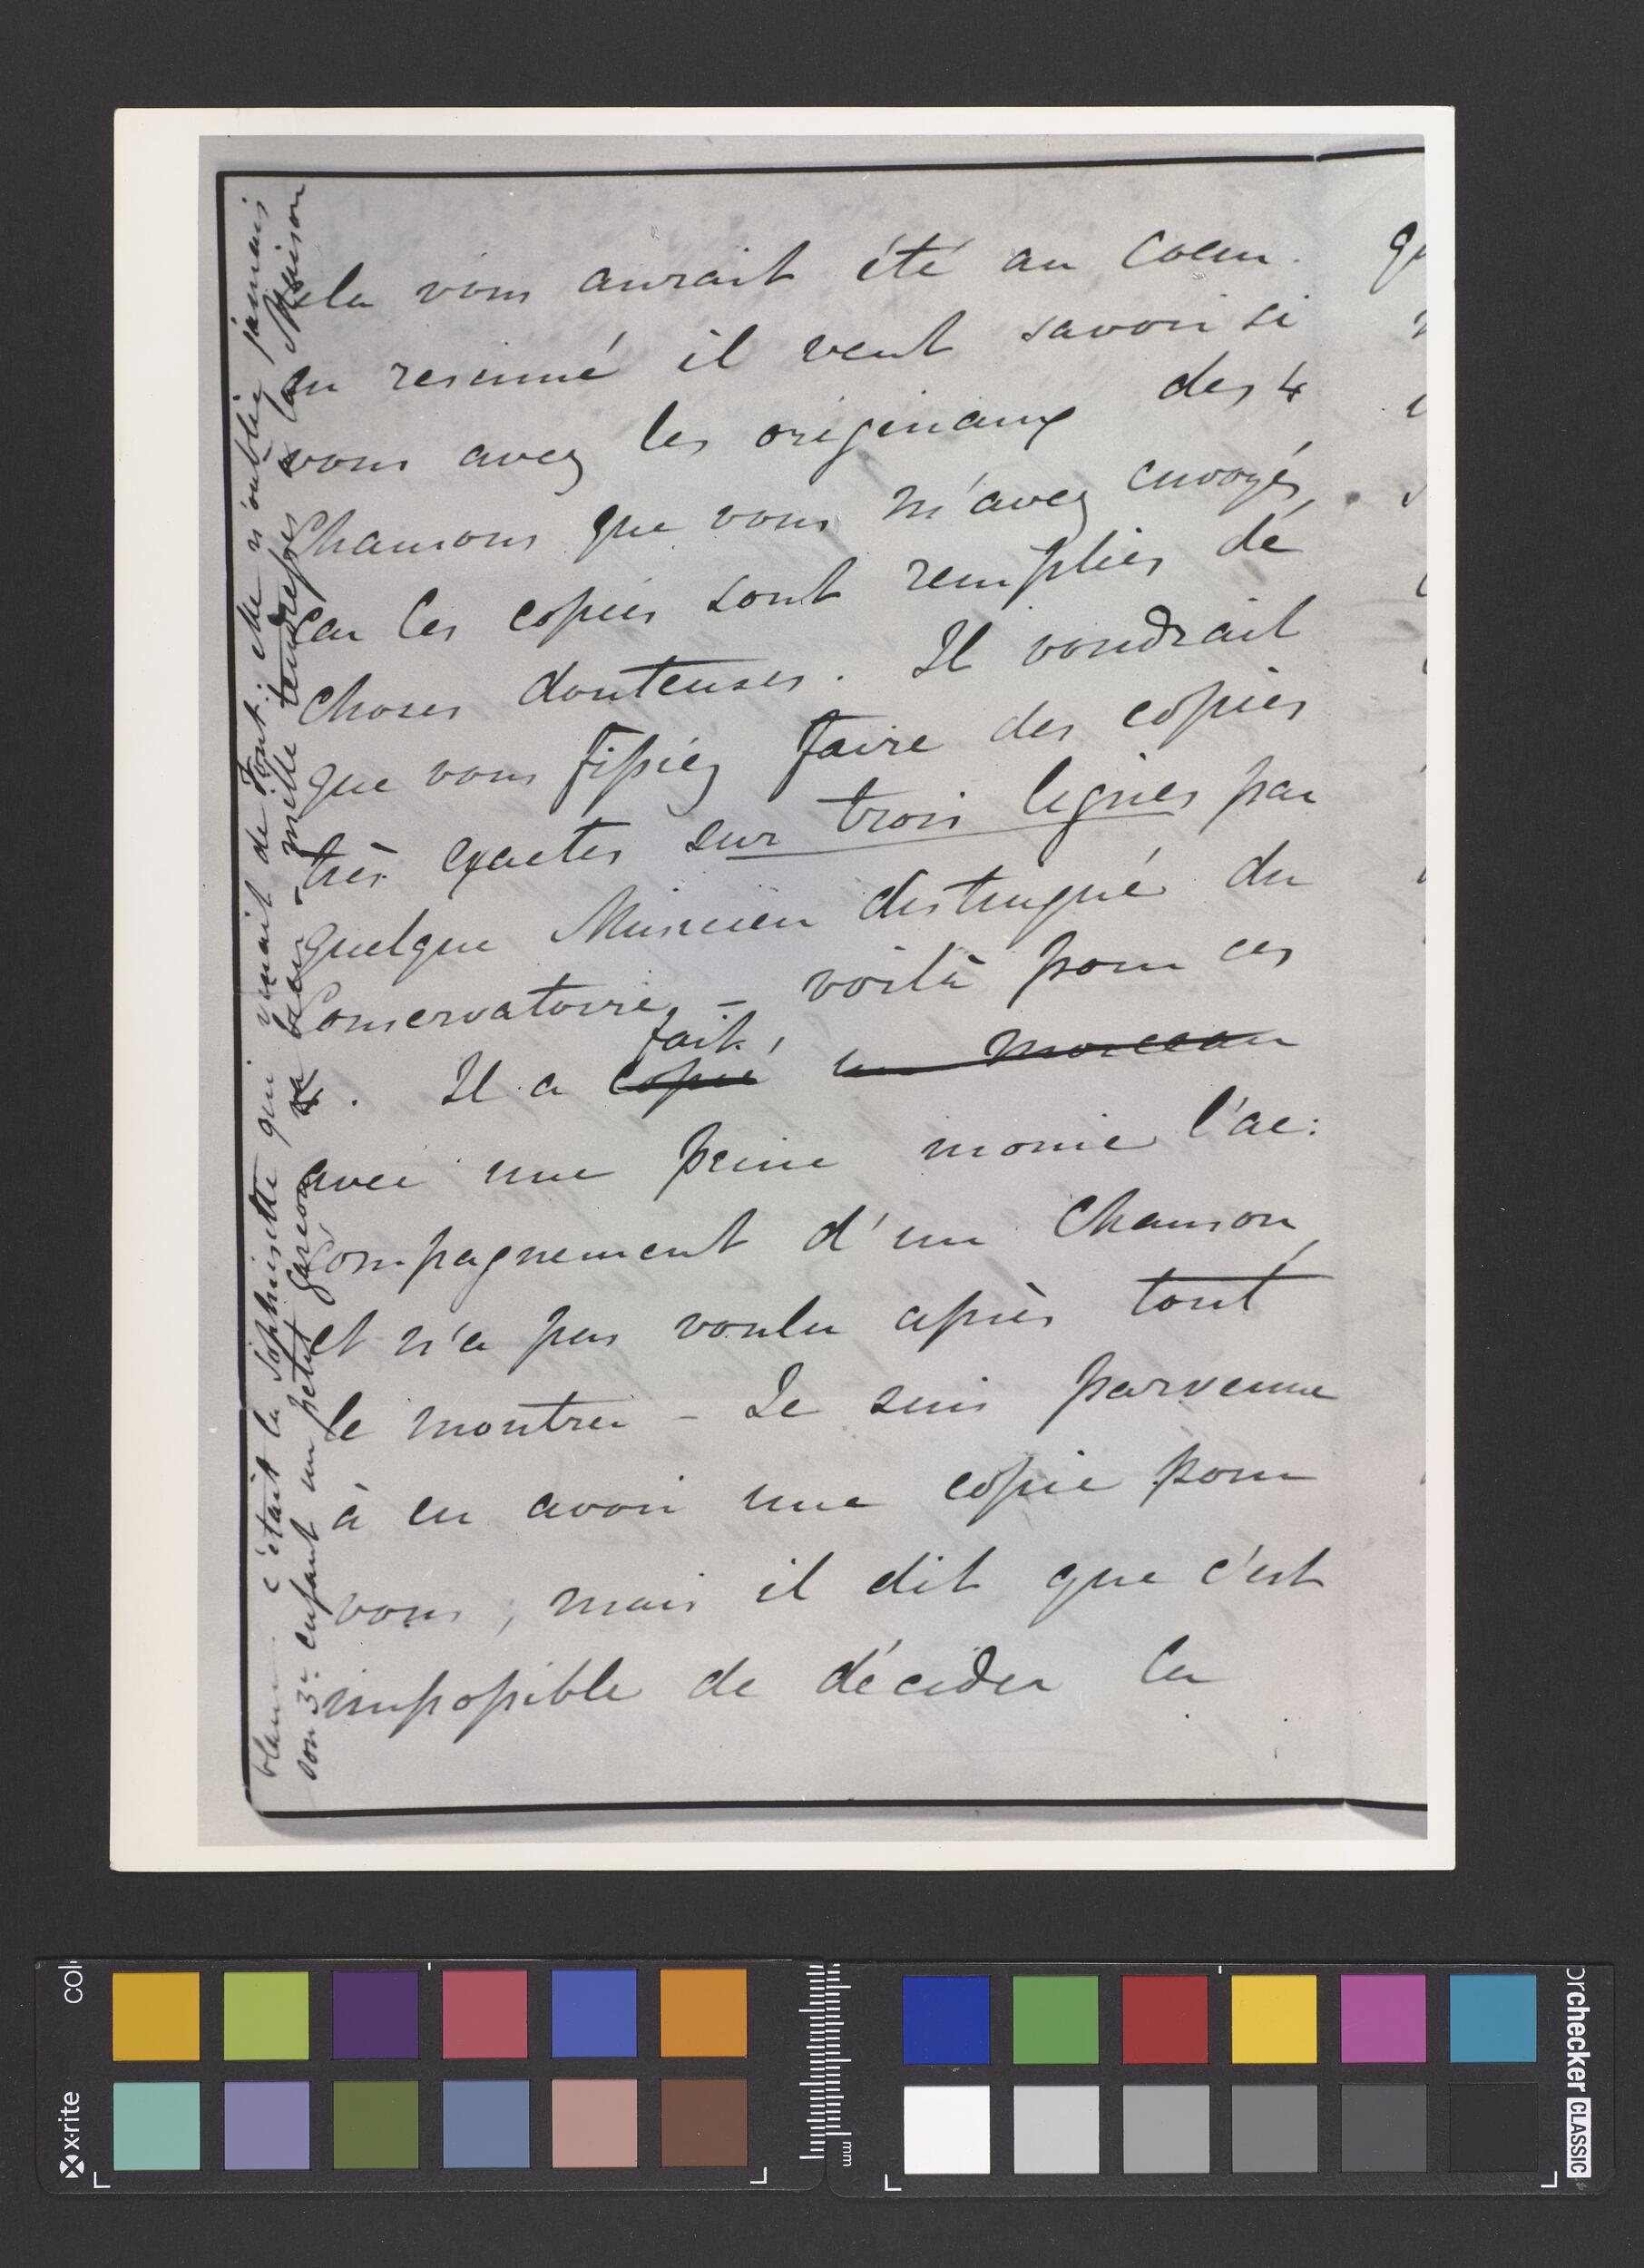 cela vous aurait été au coeur.
en resumé il veut savoir si
vous avez les originaux des 4
Chansons que vous m'avez envoyés,
Car les copies sont remplies de
Choses douteuses. Il voudrait
que vous fissiez faire des copies
très exactes sur trois lignes par
quelque Musicien distingué du
Conservatoire, - voilà pour ces
4. Il a copié un morceau
fait,
avec une peine inouie l'ac:
compagnement d'une Chanson,
et n'a pas voulu après tout
le montrer - Je suis parvenue
à en avoir une copie pour
vous, mais il dit que c'est
impossible de décider la
c'était la Sophinette qui venait de Font: Me n'oubliez jamais
son 3e enfant un petit garçon va bien - mille tendresses à la Maison
colorchecker CLASSIC
x-rite
mm